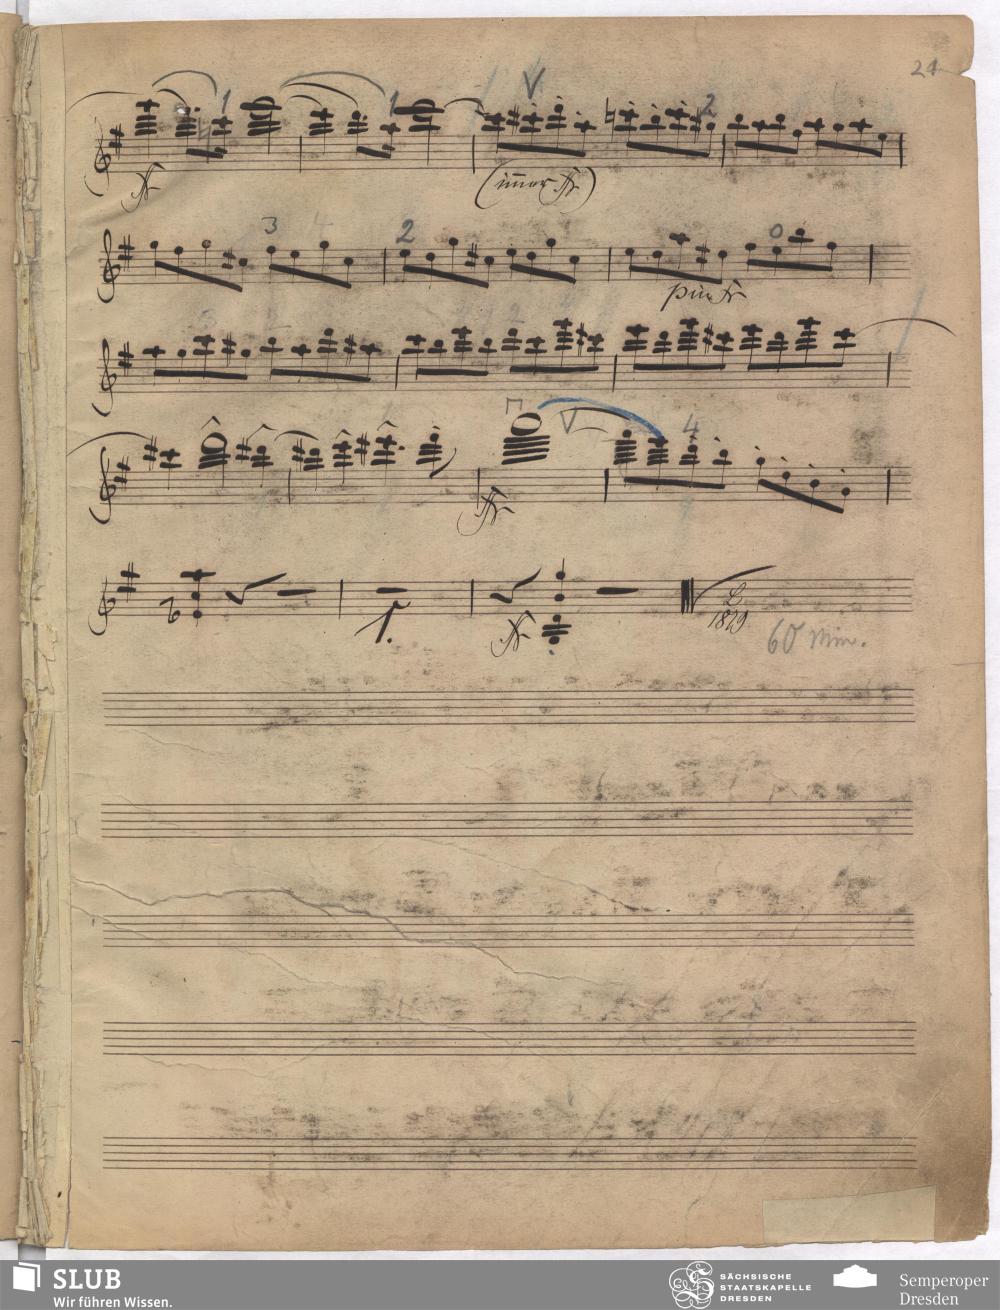 24
1 1 V 2
ff
(immer ff)
3 4 2 0
più ff
3 2 1 2
V 4
ff
1.
ff
L.
1879
60 Min.
SLUB
Wir führen Wissen.
SÄCHSISCHE
STAATSKAPELLE
DRESDEN
Semperoper
Dresden